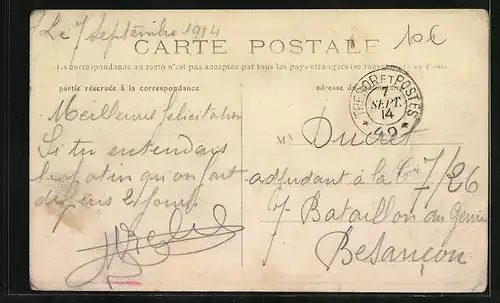 Le 7 Septembre 1914
10C
CARTE POSTALE
La correspondance au recto n'est pas acceptée par tous les pays étrangers (se renseigner à la Poste
partie réservée à la correspondance
adresse du
TRESOR ET POSTES
7
SEPT.
14
* 49 *
Meilleures félicitations
Si tu entendais
le potin qu'on fait
depuis 2 jours.
Mr Ducret
adjudant à la Cie 7/26
7e Bataillon du Génie
Besançon